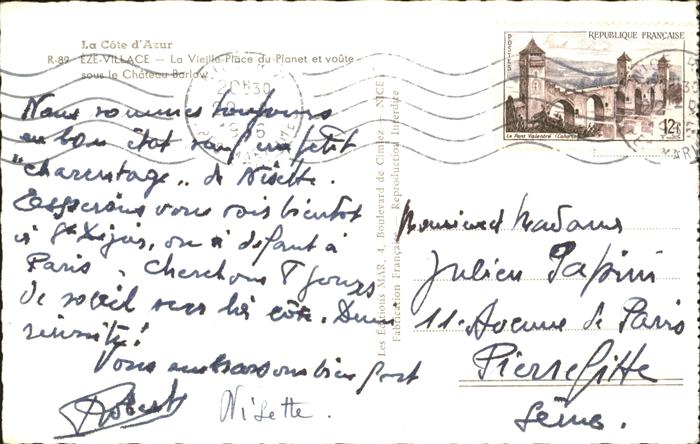 La Côte d'Azur
R-89 ÈZE-VILLAGE — La Vieille Place du Planet et voûte
sous le Château Barlow
RÉPUBLIQUE FRANÇAISE
POSTES
Le Pont Valentré (Cahors)
12F
20H30
Nous sommes toujours
en bon état sauf un petit
"charentage" de Nisette.
Espérons vous voir bientôt
à St, ou à défaut à
Paris. Cherchons
de soleil vers la côte.
Vous embrassons bien fort
Robert Nisette.
Les Éditions MAR, 4, Boulevard de Cimiez — NICE
Fabrication Française Reproduction Interdite
Monsieur et Madame
Julien Papini
11. Avenue de Paris
Pierrefitte
Seine.